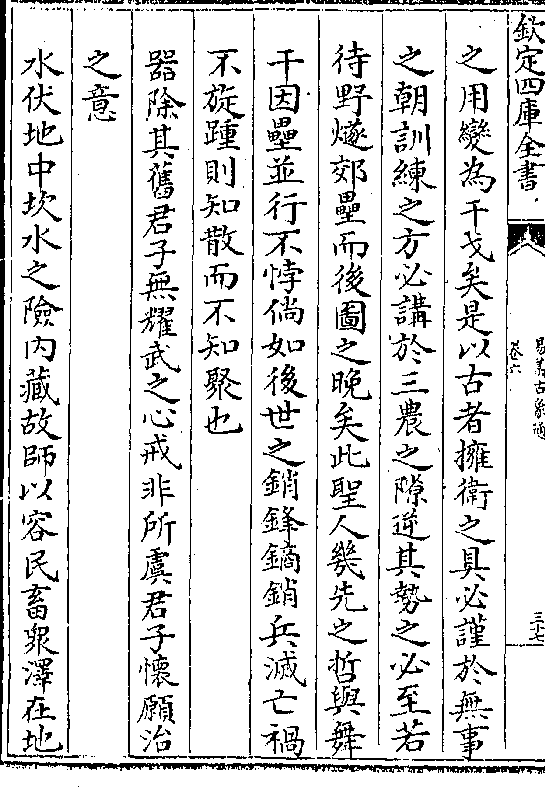 欽定四庫全書
易義古象通
卷六
三十七
之用變為干戈矣是以古者擁衛之具必謹於無事
之朝訓練之方必講於三農之隙逆其勢之必至若
待野燧郊壘而後圖之晚矣此聖人幾先之哲與舞
干因壘並行不悖倘如後世之銷鋒鏑銷兵滅亡禍
不旋踵則知散而不知聚也
器除其舊君子無耀武之心戒非所虞君子懷願治
之意
水伏地中坎水之險内藏故師以容民畜衆澤在地